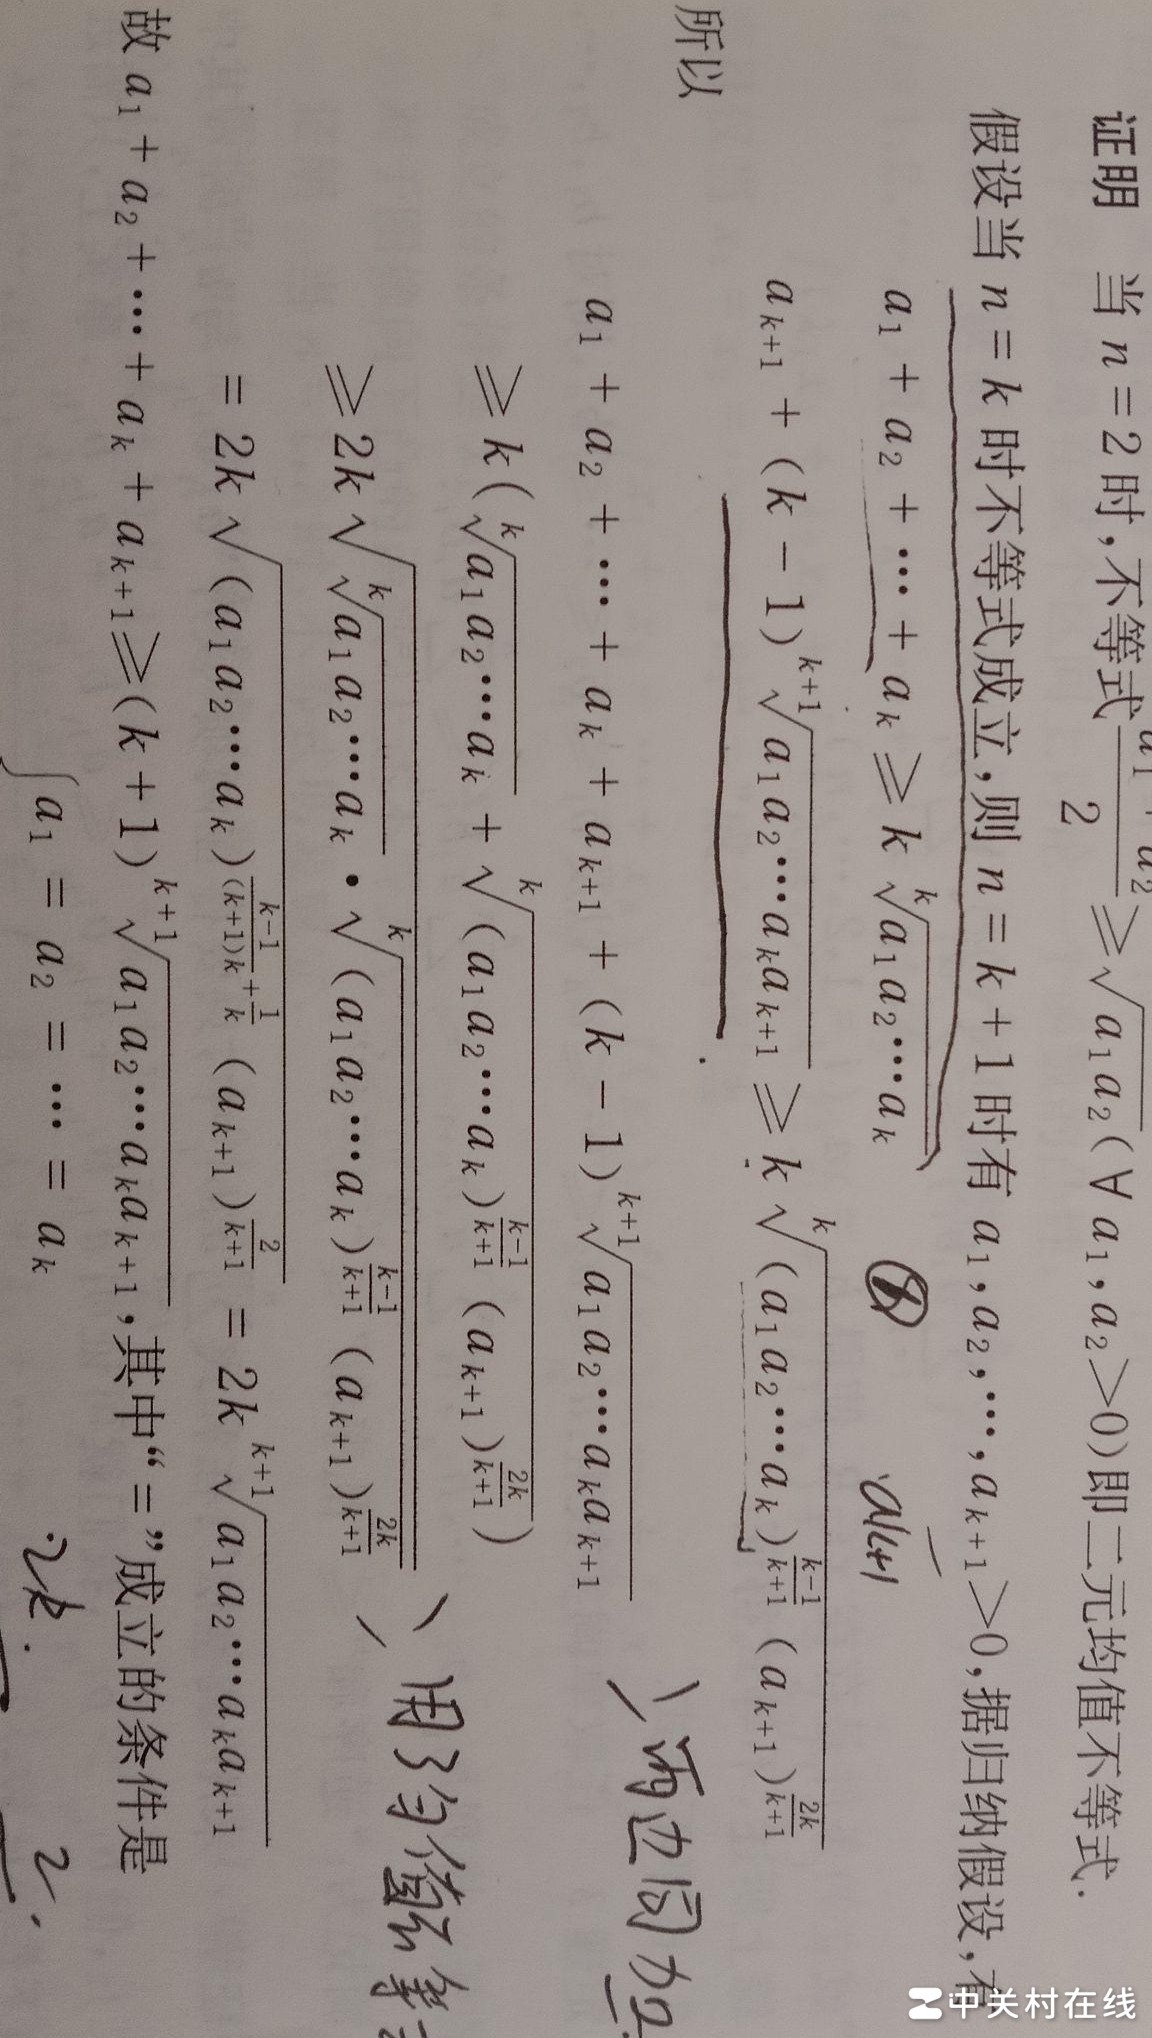 证明 当 n = 2 时,不等式 \frac{a_1 + a_2}{2} ≥ \sqrt{a_1 a_2} (∀ a_1, a_2 > 0) 即二元均值不等式.
假设当 n = k 时不等式成立,则 n = k + 1 时有 a_1, a_2, ⋯, a_{k+1} > 0,据归纳假设,有
a_1 + a_2 + ⋯ + a_k ≥ k \sqrt[k]{a_1 a_2 ⋯ a_k} a_{k+1}
a_{k+1} + (k - 1) \sqrt[k+1]{a_1 a_2 ⋯ a_k a_{k+1}} ≥ k \sqrt[k]{(a_1 a_2 ⋯ a_k)^{\frac{k-1}{k+1}} (a_{k+1})^{\frac{2k}{k+1}}}
所以
两边同加
a_1 + a_2 + ⋯ + a_k + a_{k+1} + (k - 1) \sqrt[k+1]{a_1 a_2 ⋯ a_k a_{k+1}}
≥ k (\sqrt[k]{a_1 a_2 ⋯ a_k} + \sqrt[k]{(a_1 a_2 ⋯ a_k)^{\frac{k-1}{k+1}} (a_{k+1})^{\frac{2k}{k+1}}})
用了均值不等
≥ 2k \sqrt{\sqrt[k]{a_1 a_2 ⋯ a_k} • \sqrt[k]{(a_1 a_2 ⋯ a_k)^{\frac{k-1}{k+1}} (a_{k+1})^{\frac{2k}{k+1}}}}
= 2k \sqrt{(a_1 a_2 ⋯ a_k)^{\frac{k-1}{(k+1)k} + \frac{1}{k}} (a_{k+1})^{\frac{2}{k+1}}} = 2k \sqrt[k+1]{a_1 a_2 ⋯ a_k a_{k+1}}
故 a_1 + a_2 + ⋯ + a_k + a_{k+1} ≥ (k + 1) \sqrt[k+1]{a_1 a_2 ⋯ a_k a_{k+1}},其中“=”成立的条件是
a_1 = a_2 = ⋯ = a_k
2k.
中关村在线